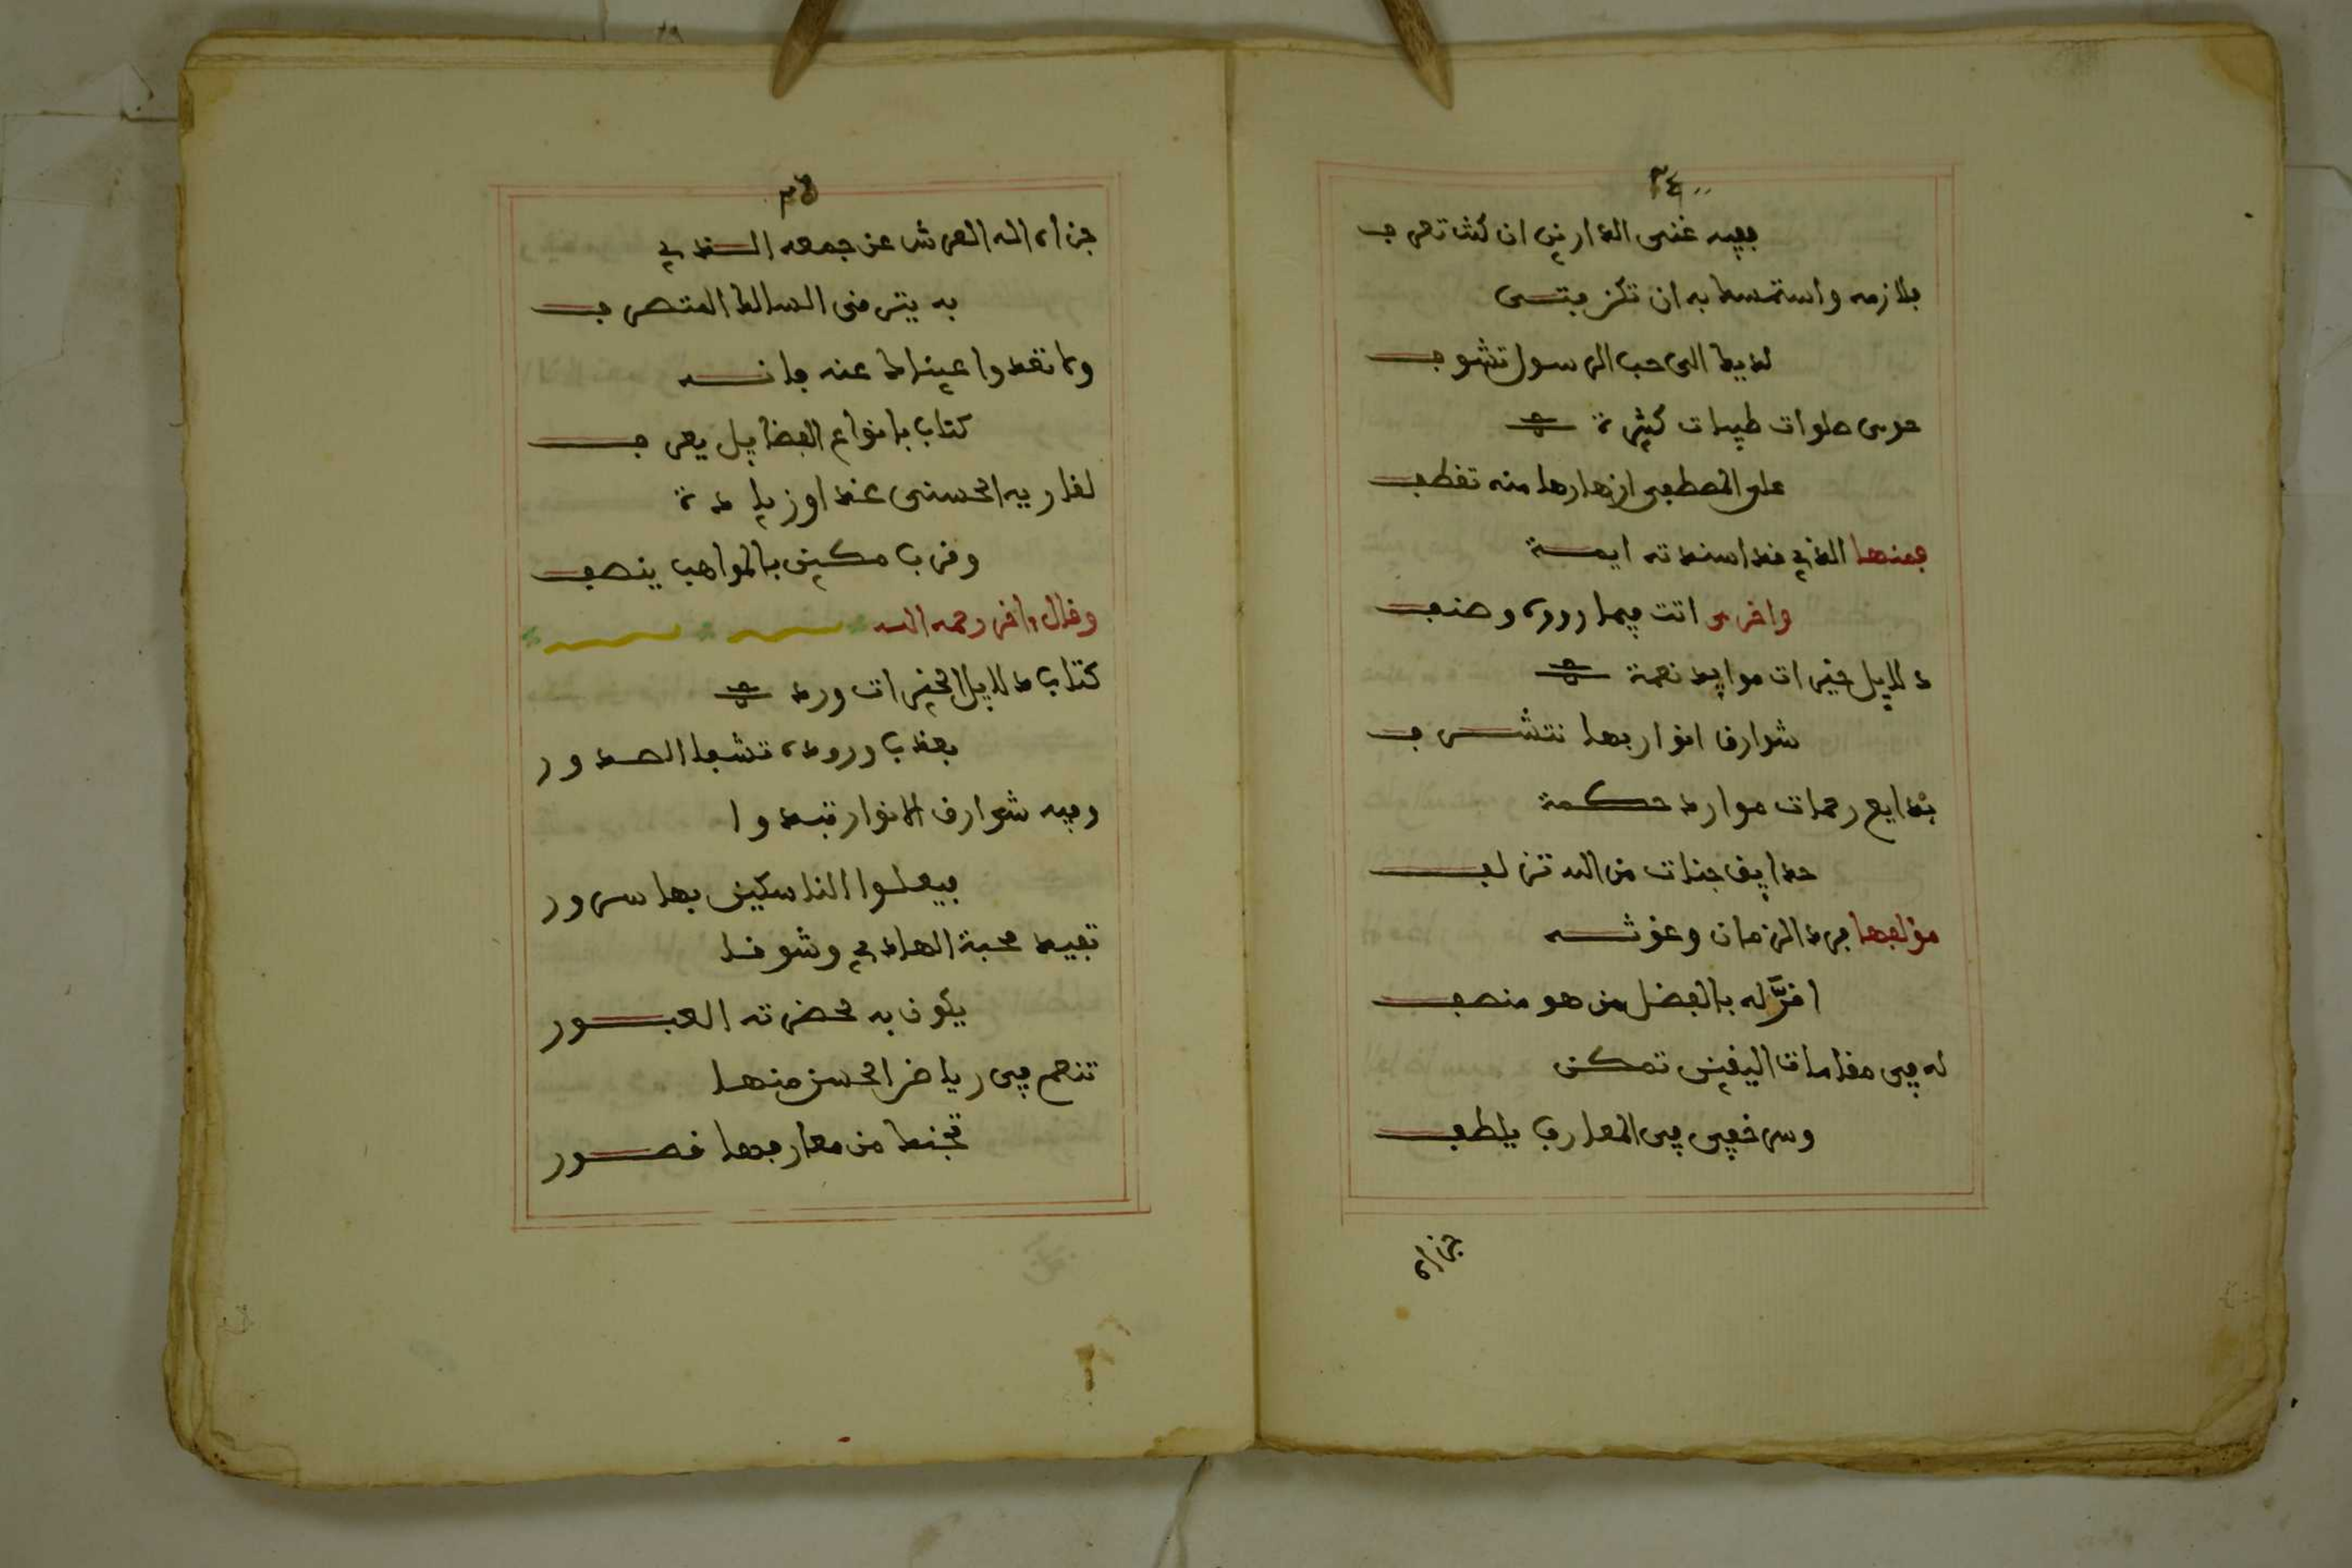 ٣٤
ففيه غنى الدارين ان كنت تعرف
فلازمه واستمسك به ان تكن فتى
لديك الى حب الرسول تشوف
حوى صلوات طيبات كثيرة
على المصطفى ازهارها منه تقطف
فمنها الذي قد اسندته ايمة
واخرى اتت فيما رووه وصنف
دلايل خيرات موايد نعمة
شوارق انوار بها نتشرف
بدايع رحمات موارد حكمة
حدايق جنات من الله تزلف
مؤلفها فرد الزمان وغوثه
اقرَّ له بالفضل من هو منصف
له في مقامات اليقين تمكن
وسر خفي في المعارف يلطف
جزاه
٣٥
جزاه اله العرش عن جمعه الذي
به يترقى السالك المتصرف
ولا تعدوا عيناك عنه فانه
كتاب بانواع الفضايل يعرف
لقاريه الحسنى غدا وزيادة
وقرب مكين بالمواهب ينصف
وقال اخر رحمه الله
كتاب دلايل الخيرات ورد
بعذب وروده تشفا الصدور
وفيه شوارق الانوار تبدوا
فيعلوا الناسكين بها سرور
تفيد محبة الهادي وشوقا
يكون به لحضرته العبور
تنعم في رياض الحسن منها
تجنك من معارفها قصور